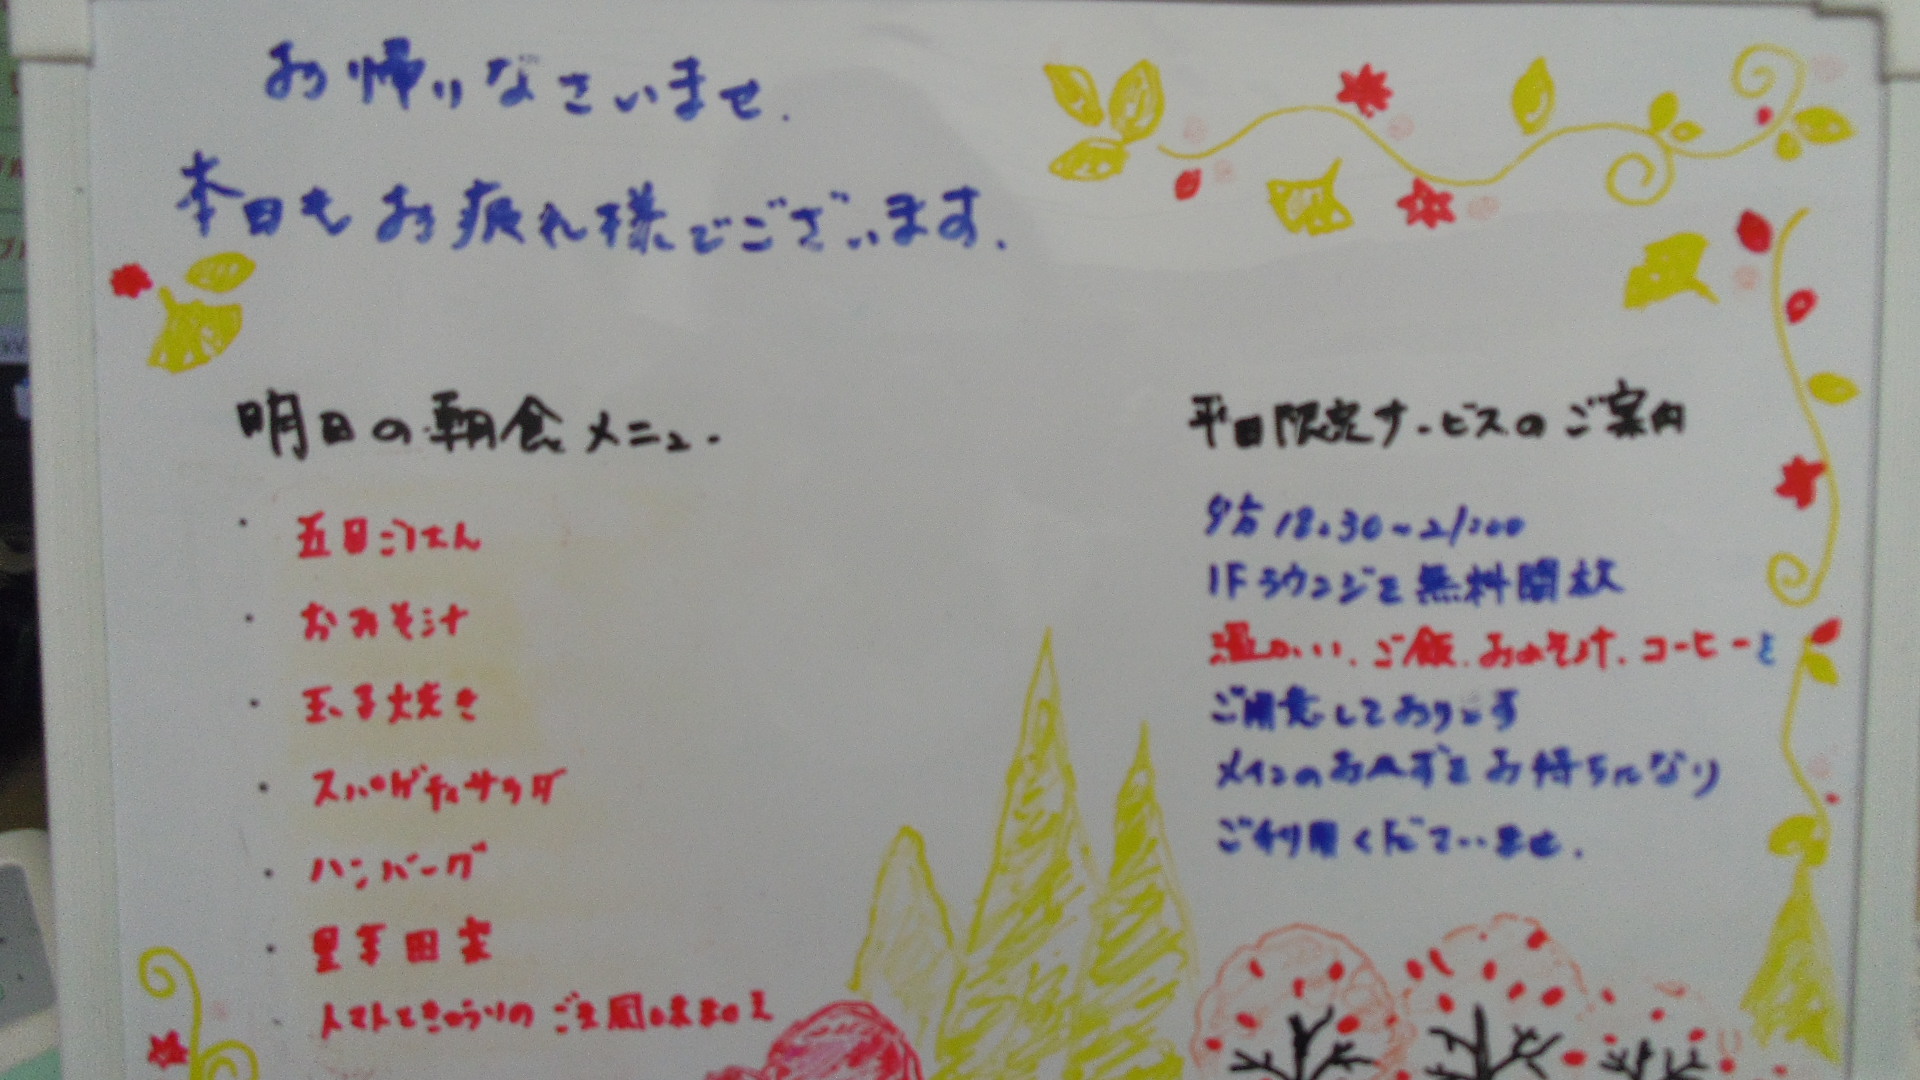 お帰りなさいませ.
本日もお疲れ様でございます.
明日の朝食メニュー
・五目ごはん
・おみそ汁
・玉子焼き
・スパゲティサラダ
・ハンバーグ
・里芋田楽
・トマトときゅうりのごま風味和え
平日限定サービスのご案内
夕方18:30~21:00
1Fラウンジを無料開放
温かい、ご飯、おみそ汁、コーヒーを
ご用意しております
メインのおかずをお持ちになり
ご利用くださいませ.